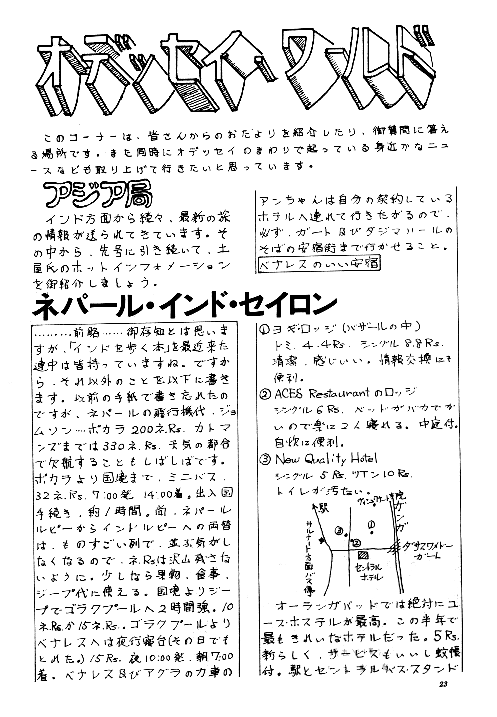 オデッセイ・ワールド
このコーナーは、皆さんからのおたよりを紹介したり、御質問に答え
る場所です。また同時にオデッセイのまわりで起っている身近かなニュ
ースなども取り上げて行きたいと思っています。
アジア局
インド方面から続々、最新の旅
の情報が送られてきています。そ
の中から、先号に引き続いて、土
屋氏のホットインフォメーション
を御紹介しましょう。
ネパール・インド・セイロン
………前略……御存知とは思いま
すが、「インドを歩く本」を最近来た
連中は皆持っていますね。ですか
ら、それ以外のことを以下に書き
ます。以前の手紙で書き忘れたの
ですが、ネパールの飛行機代、ジョ
ムソン―ポカラ200ネ.Rs. カトマ
ンズまでは330ネ.Rs. 天気の都合
で欠航することもしばしばです。
ポカラより国境まで、ミニバス、
32ネ.Rs. 7:00発 14:00着。出入国
手続き、約1時間。尚、ネパール
ルピーからインドルピーへの両替
は、ものすごい列で、並ぶ気がし
なくなるので、ネ.Rsは沢山残さな
いように。少しなら果物、食事、
ジープ代に使える。国境よりジー
プでゴラクプールへ2時間強。10
ネ.Rsか15ネ.Rs.。ゴラクプールより
ベナレスへは夜行寝台(その日でも
とれた。) 15Rs. 夜10:00発、朝7:00
着。ベナレス及びアグラの力車の
アンちゃんは自分の契約している
ホテルへ連れて行きたがるので、
必ず、ガート及びタジマハールの
そばの安宿街まで行かせること。
ベナレスのいい安宿
①ヨギ・ロッジ(バザールの中)
ドミ 4.4Rs. シングル 8.8Rs.
清潔、感じいい。情報交換にも
便利。
② ACES Restaurantのロッジ
シングル 6Rs. ベッドがバカでか
いので楽に2人寝れる。中庭付。
自炊に便利。
③ New Quality Hotel
シングル 5Rs. ツイン10Rs.
トイレが汚たない。
駅
ガンガ
サルナート方面バス停
①
②
③
セントラル
ホテル
ダサスワメドー
ガート
オーランガバッドでは絶対にユ
ースホステルが最高。この半年で
最もきれいなホテルだった。5Rs.
新らしく、サービスもいいし蚊帳
付。駅とセントラルバス・スタンド
23